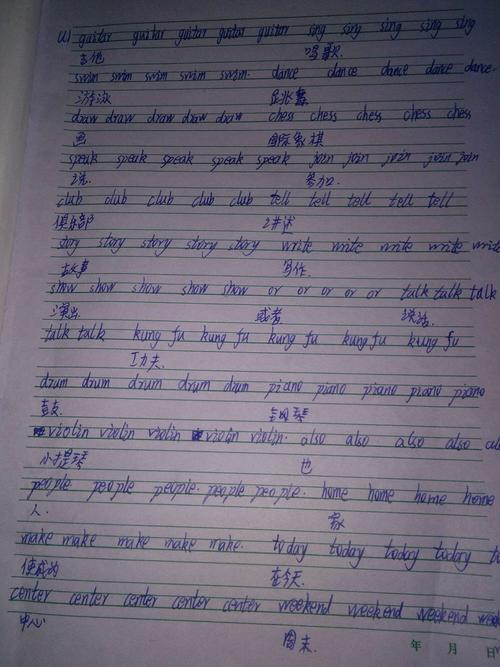 U1 guitar guitar guitar guitar guitar sing sing sing sing sing
吉他 唱歌
swim swim swim swim swim. dance dance dance dance dance.
游泳 跳舞
draw draw draw draw draw chess chess chess chess chess
画 国际象棋
speak speak speak speak speak join join join join join
说. 参加.
club club club club club tell tell tell tell tell
俱乐部 讲述
story story story story story write write write write write
故事 写作.
show show show show show or or or or or talk talk talk
演出. 或者 谈话.
talk talk kung fu kung fu kung fu kung fu kung fu
功夫.
drum drum drum drum drum piano piano piano piano piano
鼓. 钢琴
violin violin violin violin violin. also also also also
小提琴 也
people. people people. people people. home home home home
人. 家
make make make make make. today today today today
使成为 在今天.
center center center center center weekend weekend weekend
中心 周末.
年 月 日